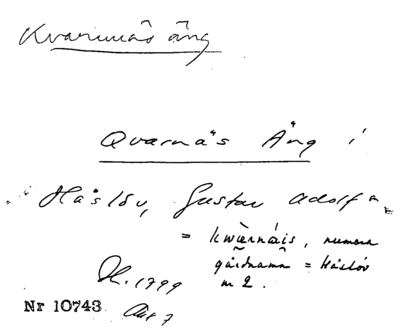 Kvarnnäs äng
Qvarnäs Äng i
Håslöv, Gustav Adolf
= kwærnáis, numera
gårdnamn = Håslöv
n 2.
1799
Nr 10743